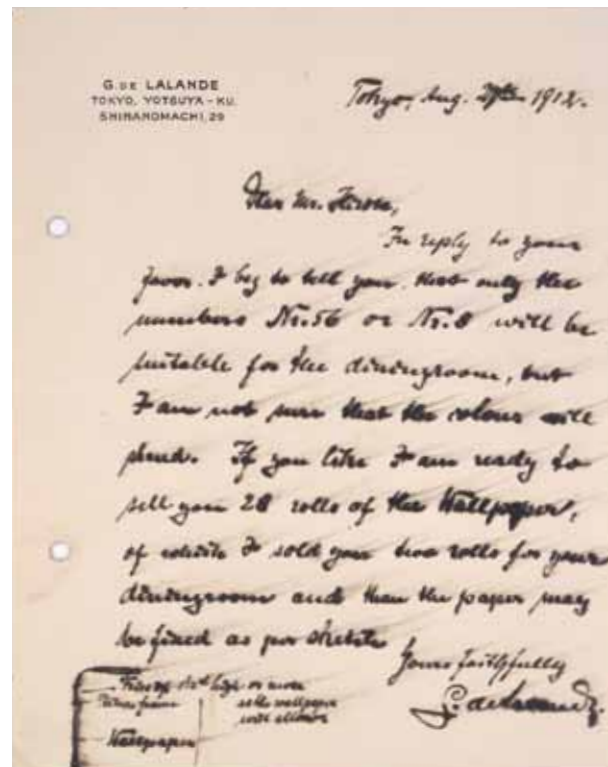 G. DE LALANDE
TOKYO, YOTSUYA-KU.
SHINANOMACHI, 29
Tokyo, Aug. 1912.
Dear Mr.
In reply to your
favor. I beg to tell you that only the
numbers Nr. 56 or Nr. 8 will be
suitable for the diningroom, but
I am not sure that the colour will
stand. If you like I am ready to
sell you 28 rolls of the Wallpaper,
of which I sold you two rolls for your
diningroom and than the paper may
be fixed as per sketch
Yours faithfully
G. de Lalande
high or more
Picture frame
as the wallpaper
will allow
Wallpaper